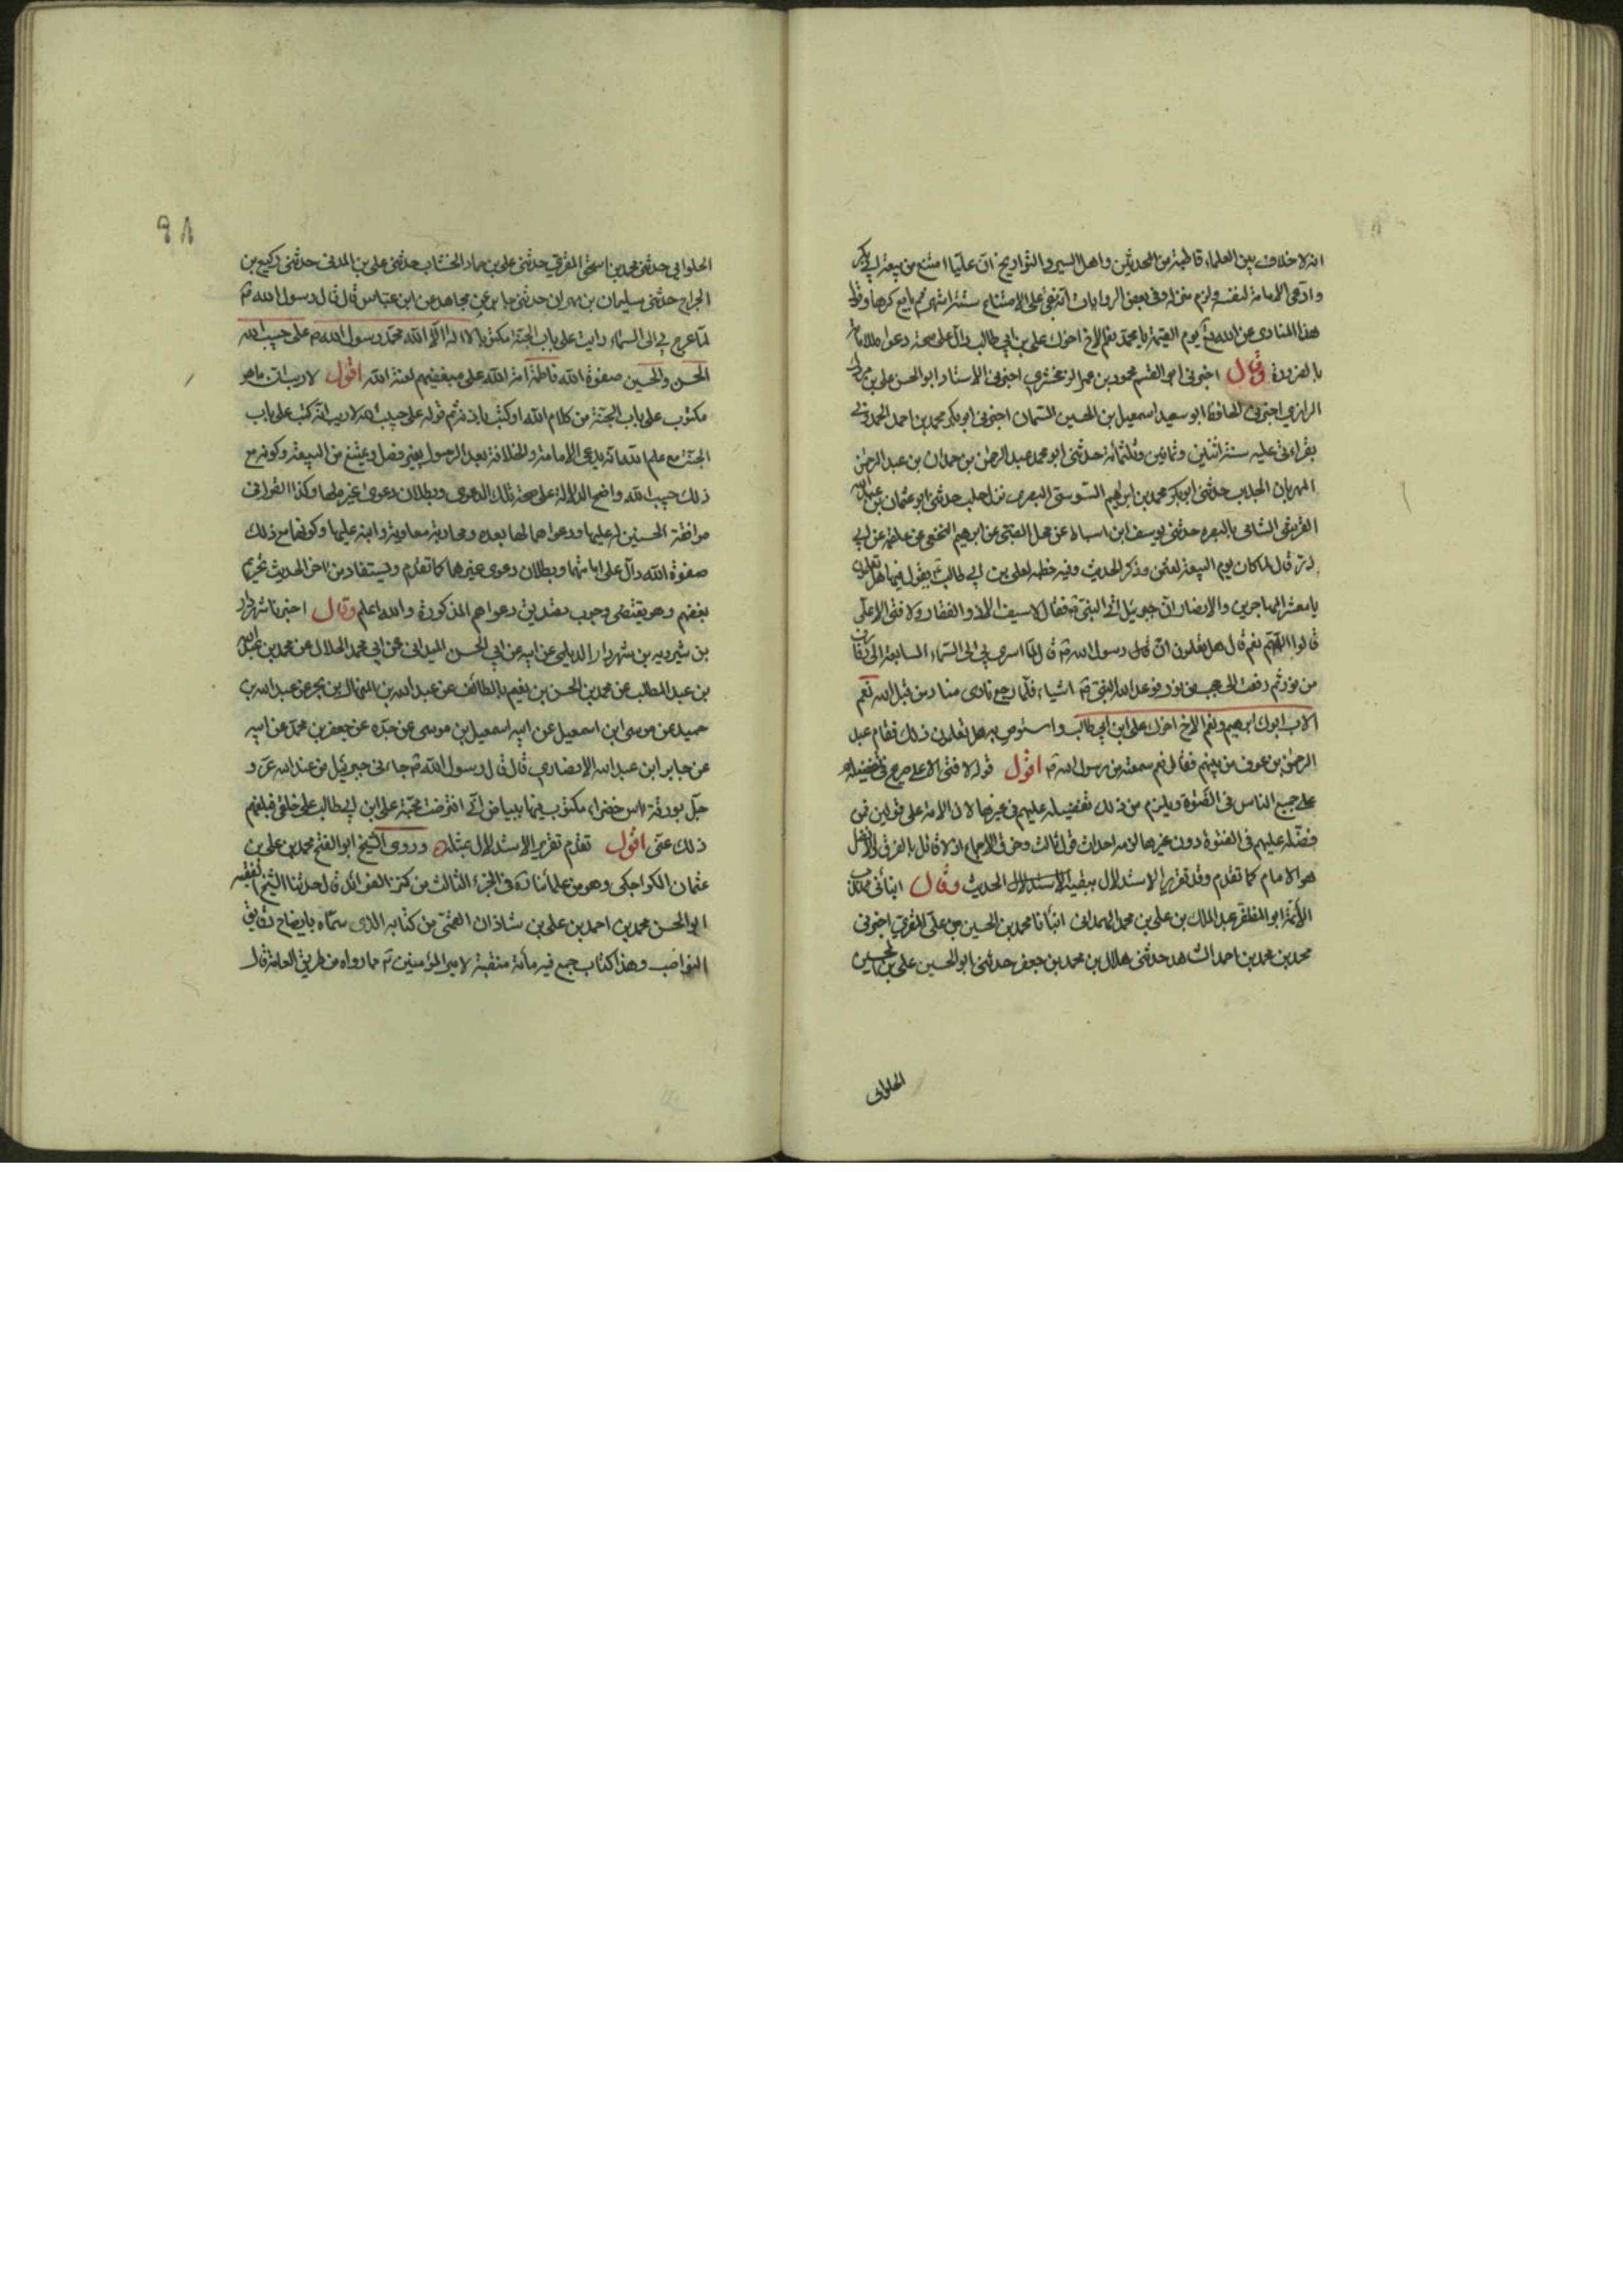 انه لا خلاف بين العلماء قاطبة من المحدثين واهل السير والتواريخ ان عليا امتنع من بيعة ابي بكر
وادعى الامامة لنفسه ولزم منزله وفي بعض الروايات انه بقي على الامتناع ستة اشهر ثم بايع كرها وقول
هذا المنادى عن الله تع يوم القيمة يا محمد نعم الاخ اخوك علي بن ابي طالب دال على صحة دعواه للامامة
بالضرورة وقال اخبرني ابو القسم محمود بن عمر الزمخشري اخبرني الاستاد ابو الحسن علي بن مردك
الرازي اخبرني الحافظ ابو سعيد اسمعيل بن الحسين السمان اخبرني ابو بكر محمد بن احمد الحمدوني
بقراءتي عليه سنة اثنين وثمانين وثلثمائة حدثني ابو محمد عبد الرحمن بن حمدان بن عبد الرحمن
المرزبان الجلاب حدثني ابو بكر محمد بن ابراهيم السوسي البصري نزل حلب حدثني ابو عثمان بن عبد الله
القرشي الشامي بالبصره حدثني يوسف ابن اسباط عن محل الضبي عن ابرهيم النخعي عن علقمه عن ابي
ذر قال لما كان يوم البيعة لعثمن وذكر الحديث وفيه خطبه لعلي بن ابي طالب يقول فيها هل تعلمون
يا معشر المهاجرين والانصار ان جبرئيل اتى النبي ص فقال لا سيف الا ذو الفقار ولا فتى الا علي
قالوا اللهم نعم قال هل تعلمون ان قال رسول الله ص قال لما اسري بي الى السماء السابعة الى رفارف
من نور ثم رفعت الى حجب من نور فوعد الله النبي ص اشياء فلما رجع نادى مناد من قبل الله نعم
الاب ابوك ابرهيم ونعم الاخ اخوك علي ابن ابي طالب واستوص به هل تعلمون ذلك فقام عبد
الرحمن بن عوف من بينهم فقال نعم سمعته من رسول الله ص اقول قوله لا فتى الا علي صريح في تفضيله
على جميع الناس في الفتوة ويلزم من ذلك تفضيله عليهم في غيرها لان الامة على قولين فمن
فضله عليهم في الفتوة دون غيرها لزمه احداث قول ثالث وخرق الاجماع اذ لا قائل بالفرق والافضل
هو الامام كما تقدم وقد تقرر الاستدلال ببقية الحديث وقال انبأني
الائمة ابو المظفر عبد الملك بن علي بن محمد الهمداني انبأنا محمد بن الحسين بن علي المقري اخبرني
محمد بن محمد بن احمد الشاهد حدثني هلال بن محمد بن جعفر حدثني ابو الحسين علي بن الحسين
الحلواني
٩٨
الحلواني حدثني محمد بن اسحق المقري حدثني علي بن حماد الخشاب حدثني علي بن المدني حدثني وكيع بن
الجراح حدثني سليمان بن مهران حدثني جابر عن مجاهد عن ابن عباس قال قال رسول الله ص
لما عرج بي الى السماء رايت على باب الجنة مكتوبا لا اله الا الله محمد رسول الله ص علي حبيب الله
الحسن والحسين صفوة الله فاطمة امة الله على مبغضيهم لعنة الله اقول لا ريب ان ما هو
مكتوب على باب الجنة من كلام الله او كتب باذنه ثم قوله علي حبيب الله لا ريب انه كتب على باب
الجنة مع علم الله انه يدعي الامامة والخلافة بعد الرسول بغير فصل ويمتنع من البيعة وكونه مع
ذلك حبيب الله واضح الدلالة على صحة تلك الدعوى وبطلان دعوى غيره لها وكذا القول في
مرافقة الحسنين له عليها ودعواهما لها بعده ومحاربة معاوية وابنه عليها وكونهما مع ذلك
صفوة الله دال على امامتهما وبطلان دعوى غيرها كما تقدم ويستفاد من اخر الحديث تحريم
بغضهم وهو يقتضي وجوب تصديق دعواهم المذكورة والله اعلم وقال اخبرنا شهردار
بن شيرويه بن شهردار الديلمي عن ابيه عن ابي الحسن الميداني عن ابي محمد الخلال عن محمد بن عبد الله
بن عبد المطلب عن محمد بن الحسن بن نعيم بالطائف عن عبد الله بن المنهال بن بحر عن عبد الله بن
حميد عن موسى ابن اسمعيل عن ابيه اسمعيل بن موسى عن جده عن جعفر بن محمد عن ابيه
عن جابر ابن عبد الله الانصاري قال قال رسول الله ص جاءني جبرئيل من عند الله عز و
جل بورقة اس خضراء مكتوب فيها ببياض اني افترضت محبة علي ابن ابي طالب على خلقي فبلغهم
ذلك عني اقول تقدم تقرير الاستدلال بمثله وروى الشيخ ابو الفتح محمد بن علي بن
عثمان الكراجكي وهو من علمائنا ره في الجزء الثالث من كنز الفوائد قال حدثنا الشيخ الفقيه
ابو الحسن محمد بن احمد بن علي بن شاذان القمي من كتابه الذي سماه بايضاح دقايق
النواصب وهذا كتاب جمع فيه مائة منقبة لامير المؤمنين ع مما رواه من طريق العامة قال